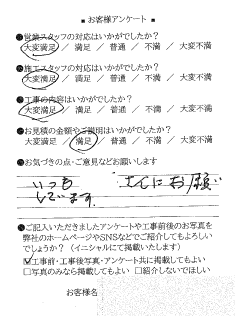 ■ お客様アンケート ■
●営業スタッフの対応はいかがでしたか？
大変満足 ／ 満足 ／ 普通 ／ 不満 ／ 大変不満
●施工スタッフの対応はいかがでしたか？
大変満足 ／ 満足 ／ 普通 ／ 不満 ／ 大変不満
●工事の内容はいかがでしたか？
大変満足 ／ 満足 ／ 普通 ／ 不満 ／ 大変不満
●お見積の金額やご説明はいかがでしたか？
大変満足 ／ 満足 ／ 普通 ／ 不満 ／ 大変不満
●お気づきの点・ご意見などお願いします
いつも お願
しています。
●ご記入いただきましたアンケートや工事前後のお写真を
弊社のホームページやSNSなどでご紹介してもよろしい
でしょうか？（イニシャルにて掲載いたします）
☑工事前・工事後写真・アンケート共に掲載してもよい
□写真のみなら掲載してもよい □紹介しないでほしい
お客様名